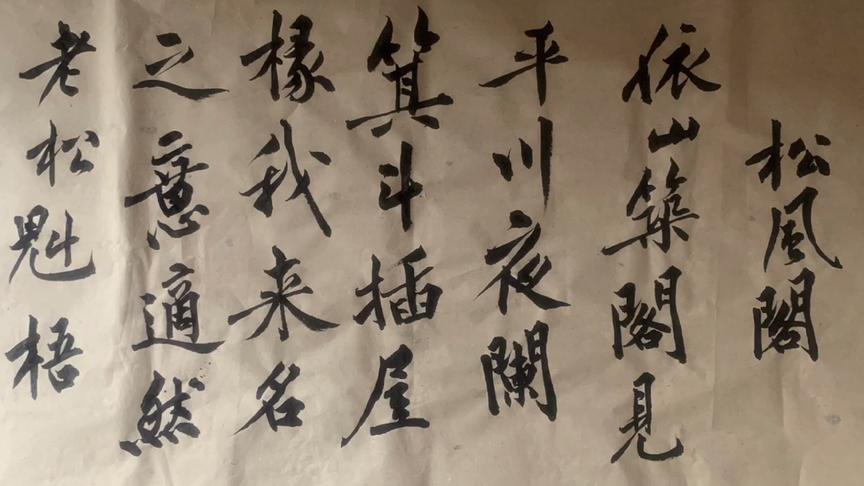 松風閣
依山築閣見
平川夜闌
箕斗插屋
椽我来名
之意適然
老松魁梧